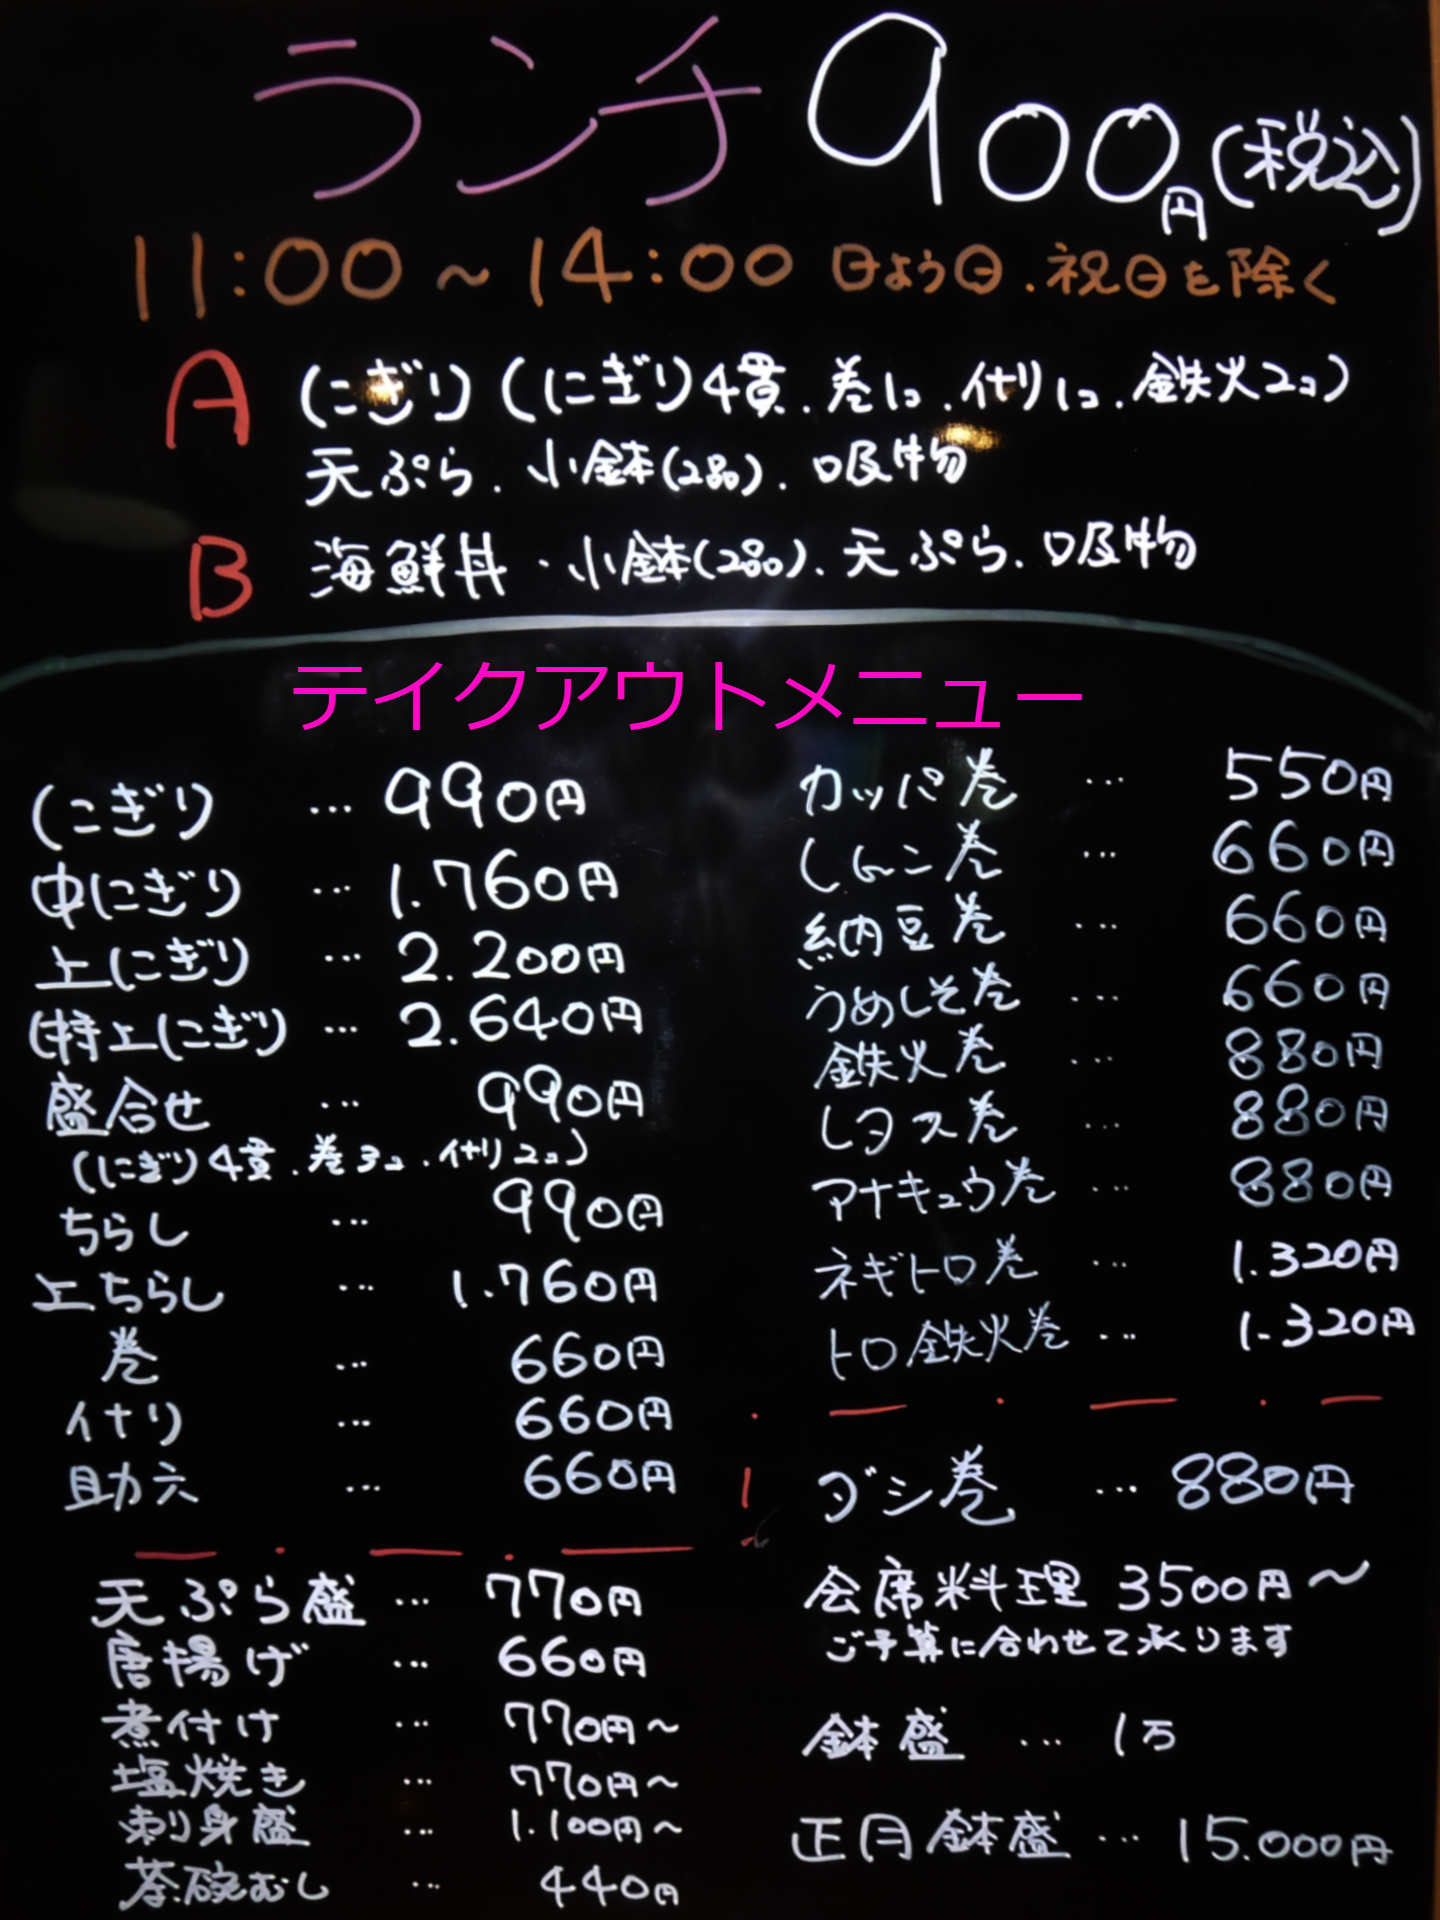 ランチ 900円(税込)
11:00～14:00 日よう日.祝日を除く
A にぎり(にぎり4貫.巻1コ.イナリ1コ.鉄火2コ)
天ぷら.小鉢(2品).吸物
B 海鮮丼・小鉢(2品).天ぷら.吸物
テイクアウトメニュー
にぎり … 990円
中にぎり … 1.760円
上にぎり … 2.200円
特上にぎり … 2.640円
盛合せ … 990円
(にぎり4貫.巻3コ.イナリ2コ)
ちらし … 990円
上ちらし … 1.760円
巻 … 660円
イナリ … 660円
助六 … 660円
天ぷら盛 … 770円
唐揚げ … 660円
煮付け … 770円～
塩焼き … 770円～
刺身盛 … 1.100円～
茶碗むし … 440円
カッパ巻 … 550円
しんこ巻 … 660円
納豆巻 … 660円
うめしそ巻 … 660円
鉄火巻 … 880円
レタス巻 … 880円
アナキュウ巻 … 880円
ネギトロ巻 … 1.320円
トロ鉄火巻 … 1.320円
ダシ巻 … 880円
会席料理 3500円～
ご予算に合わせて承ります
鉢盛 … 1万
正月鉢盛 … 15.000円